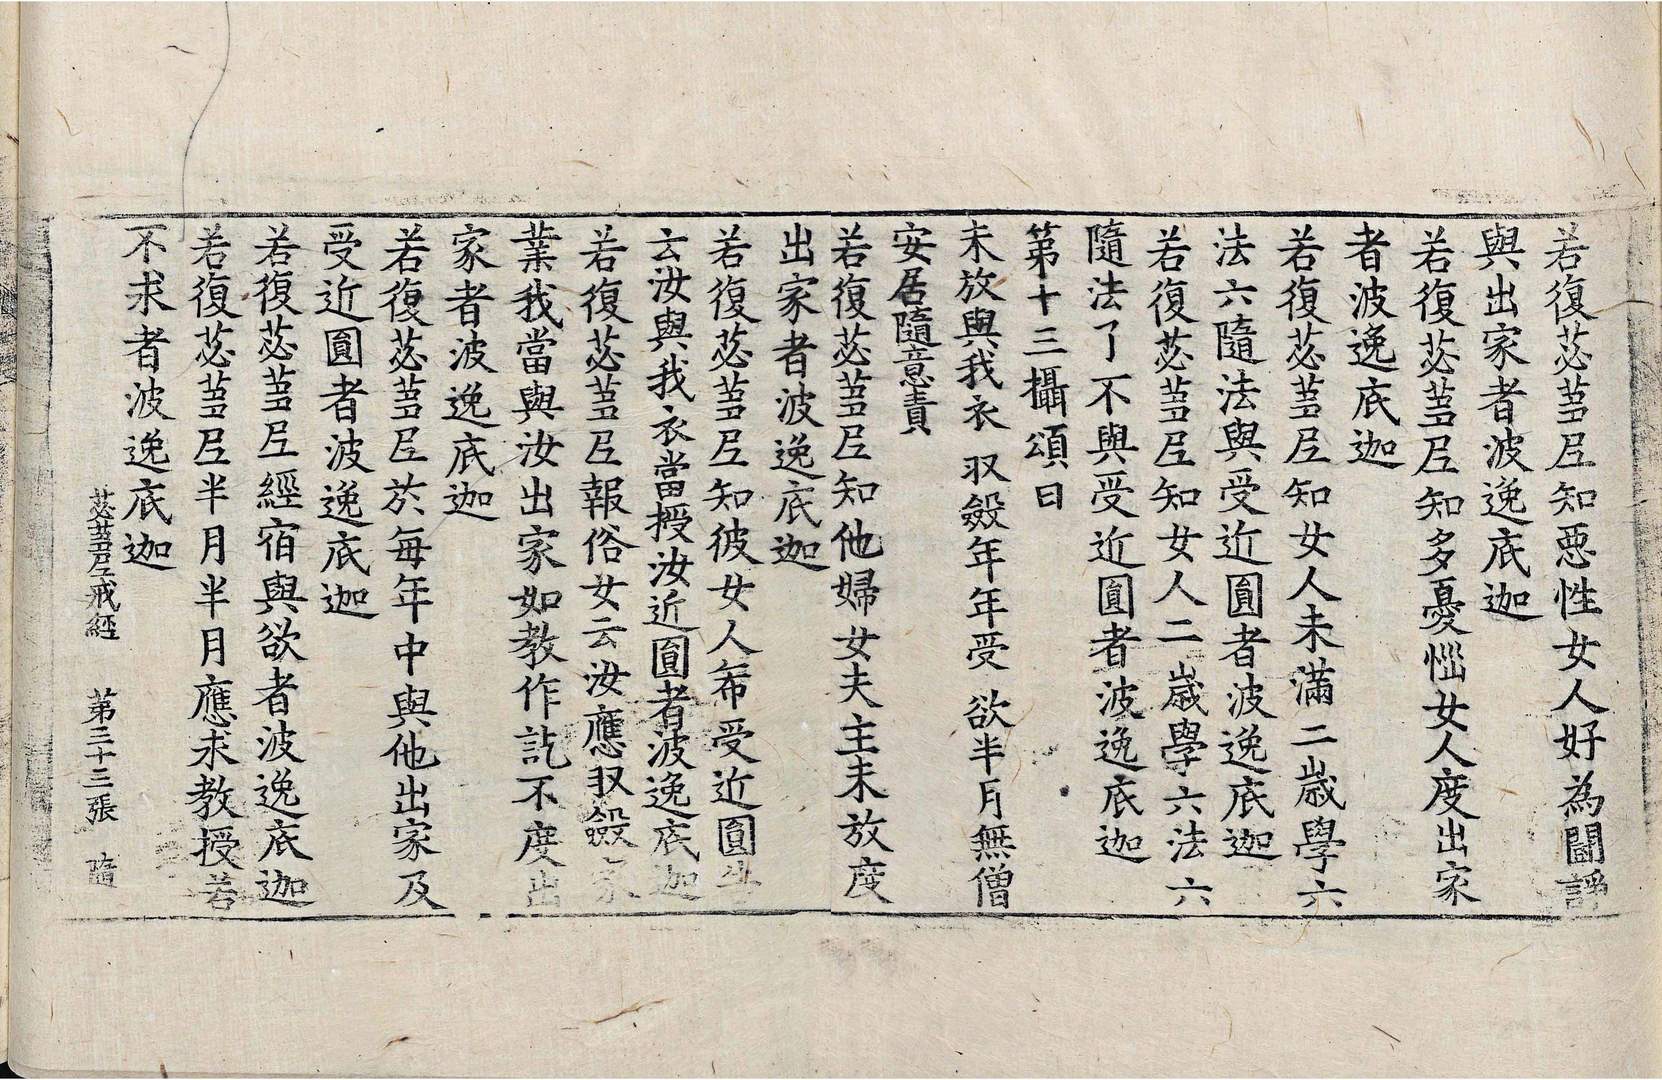 若復苾蒭尼知惡性女人好為鬪諍
與出家者波逸底迦
若復苾蒭尼知多憂惱女人度出家
者波逸底迦
若復苾蒭尼知女人未滿二歲學六
法六隨法與受近圓者波逸底迦
若復苾蒭尼知女人二歲學六法六
隨法了不與受近圓者波逸底迦
第十三攝頌曰
未放與我衣 収斂年年受 欲半月無僧
安居隨意責
若復苾蒭尼知他婦女夫主未放度
出家者波逸底迦
若復苾蒭尼知彼女人希受近圓告
云汝與我衣當授汝近圓者波逸底迦
若復苾蒭尼報俗女云汝應収斂家
業我當與汝出家如教作訖不度出
家者波逸底迦
若復苾蒭尼於每年中與他出家及
受近圓者波逸底迦
若復苾蒭尼經宿與欲者波逸底迦
若復苾蒭尼半月半月應求教授若
不求者波逸底迦
苾蒭尼戒經 第三十三張 隨